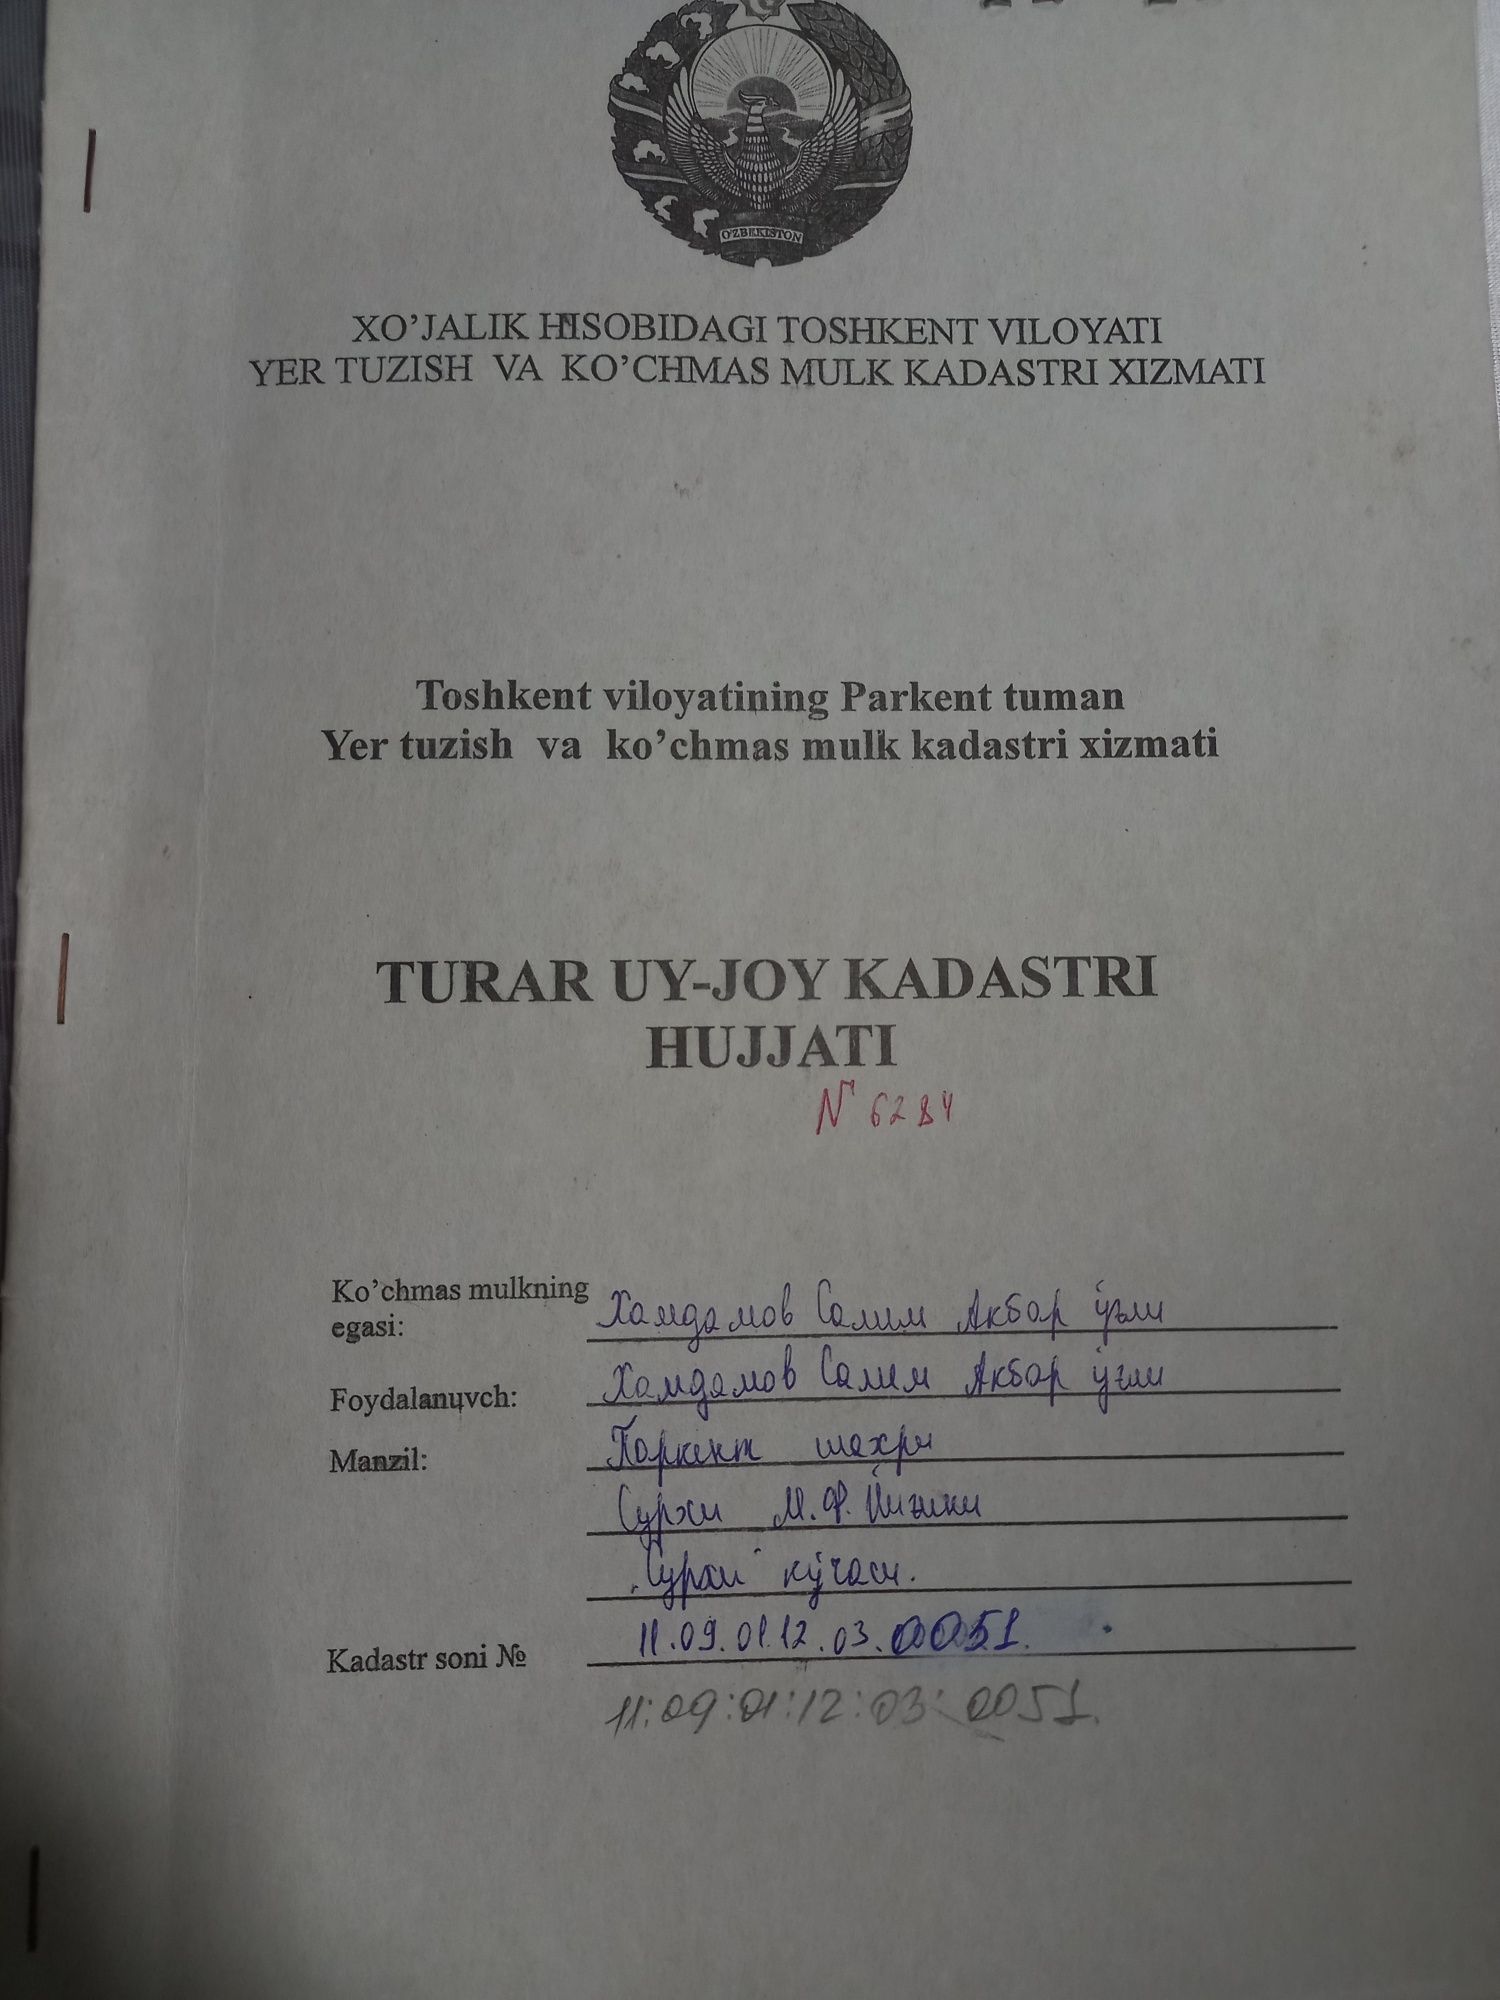 O'ZBEKISTON
XO’JALIK HISOBIDAGI TOSHKENT VILOYATI
YER TUZISH VA KO’CHMAS MULK KADASTRI XIZMATI
Toshkent viloyatining Parkent tuman
Yer tuzish va ko’chmas mulk kadastri xizmati
TURAR UY-JOY KADASTRI
HUJJATI
N 6284
Ko’chmas mulkning
egasi: Хамдамов Салим Акбар ўғли
Foydalanuvch: Хамдамов Салим Акбар ўғли
Manzil: Паркент шахри
Сурхи М.Ф.Йиғини
"Сурхи" кўчаси.
Kadastr soni № 11.09.01.12.03.0051.
11:09:01:12:03:0051.